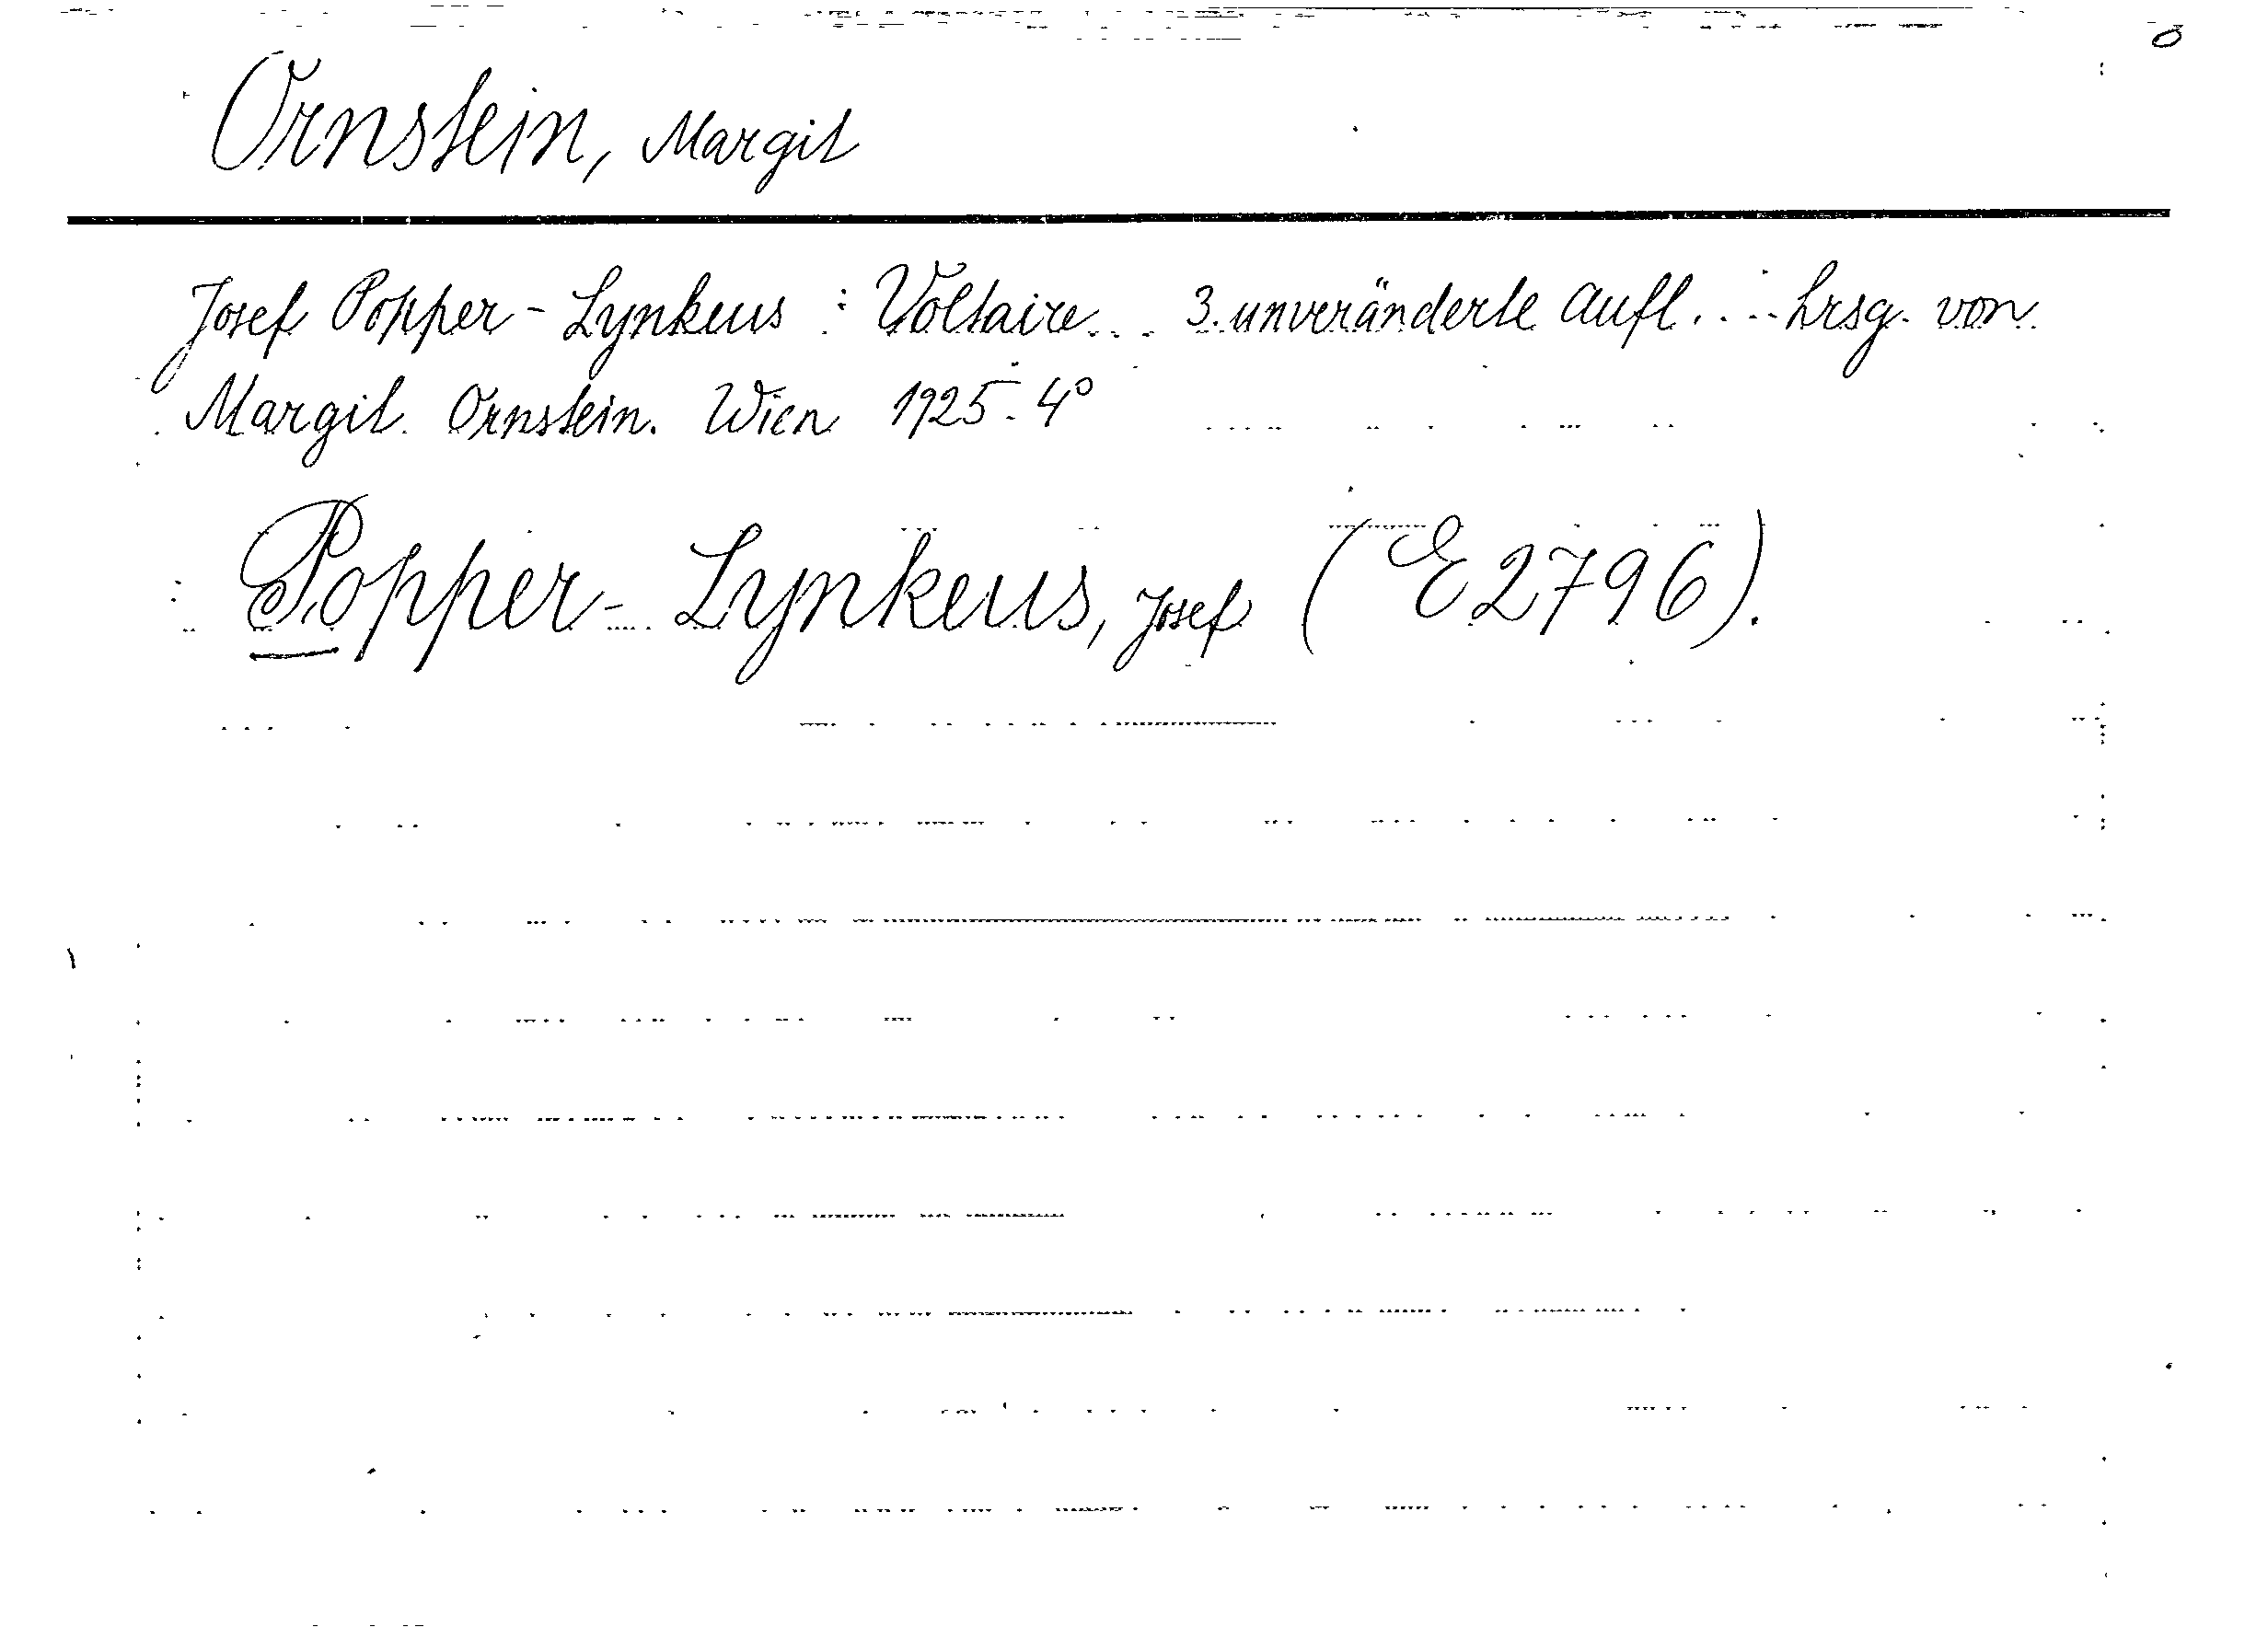 Ornstein, Margit
Josef Popper-Lynkeus : Voltaire... 3. unveränderte Aufl. ... hrsg. von
Margit Ornstein. Wien 1925. 4°
Popper-Lynkeus, Josef (E2796).